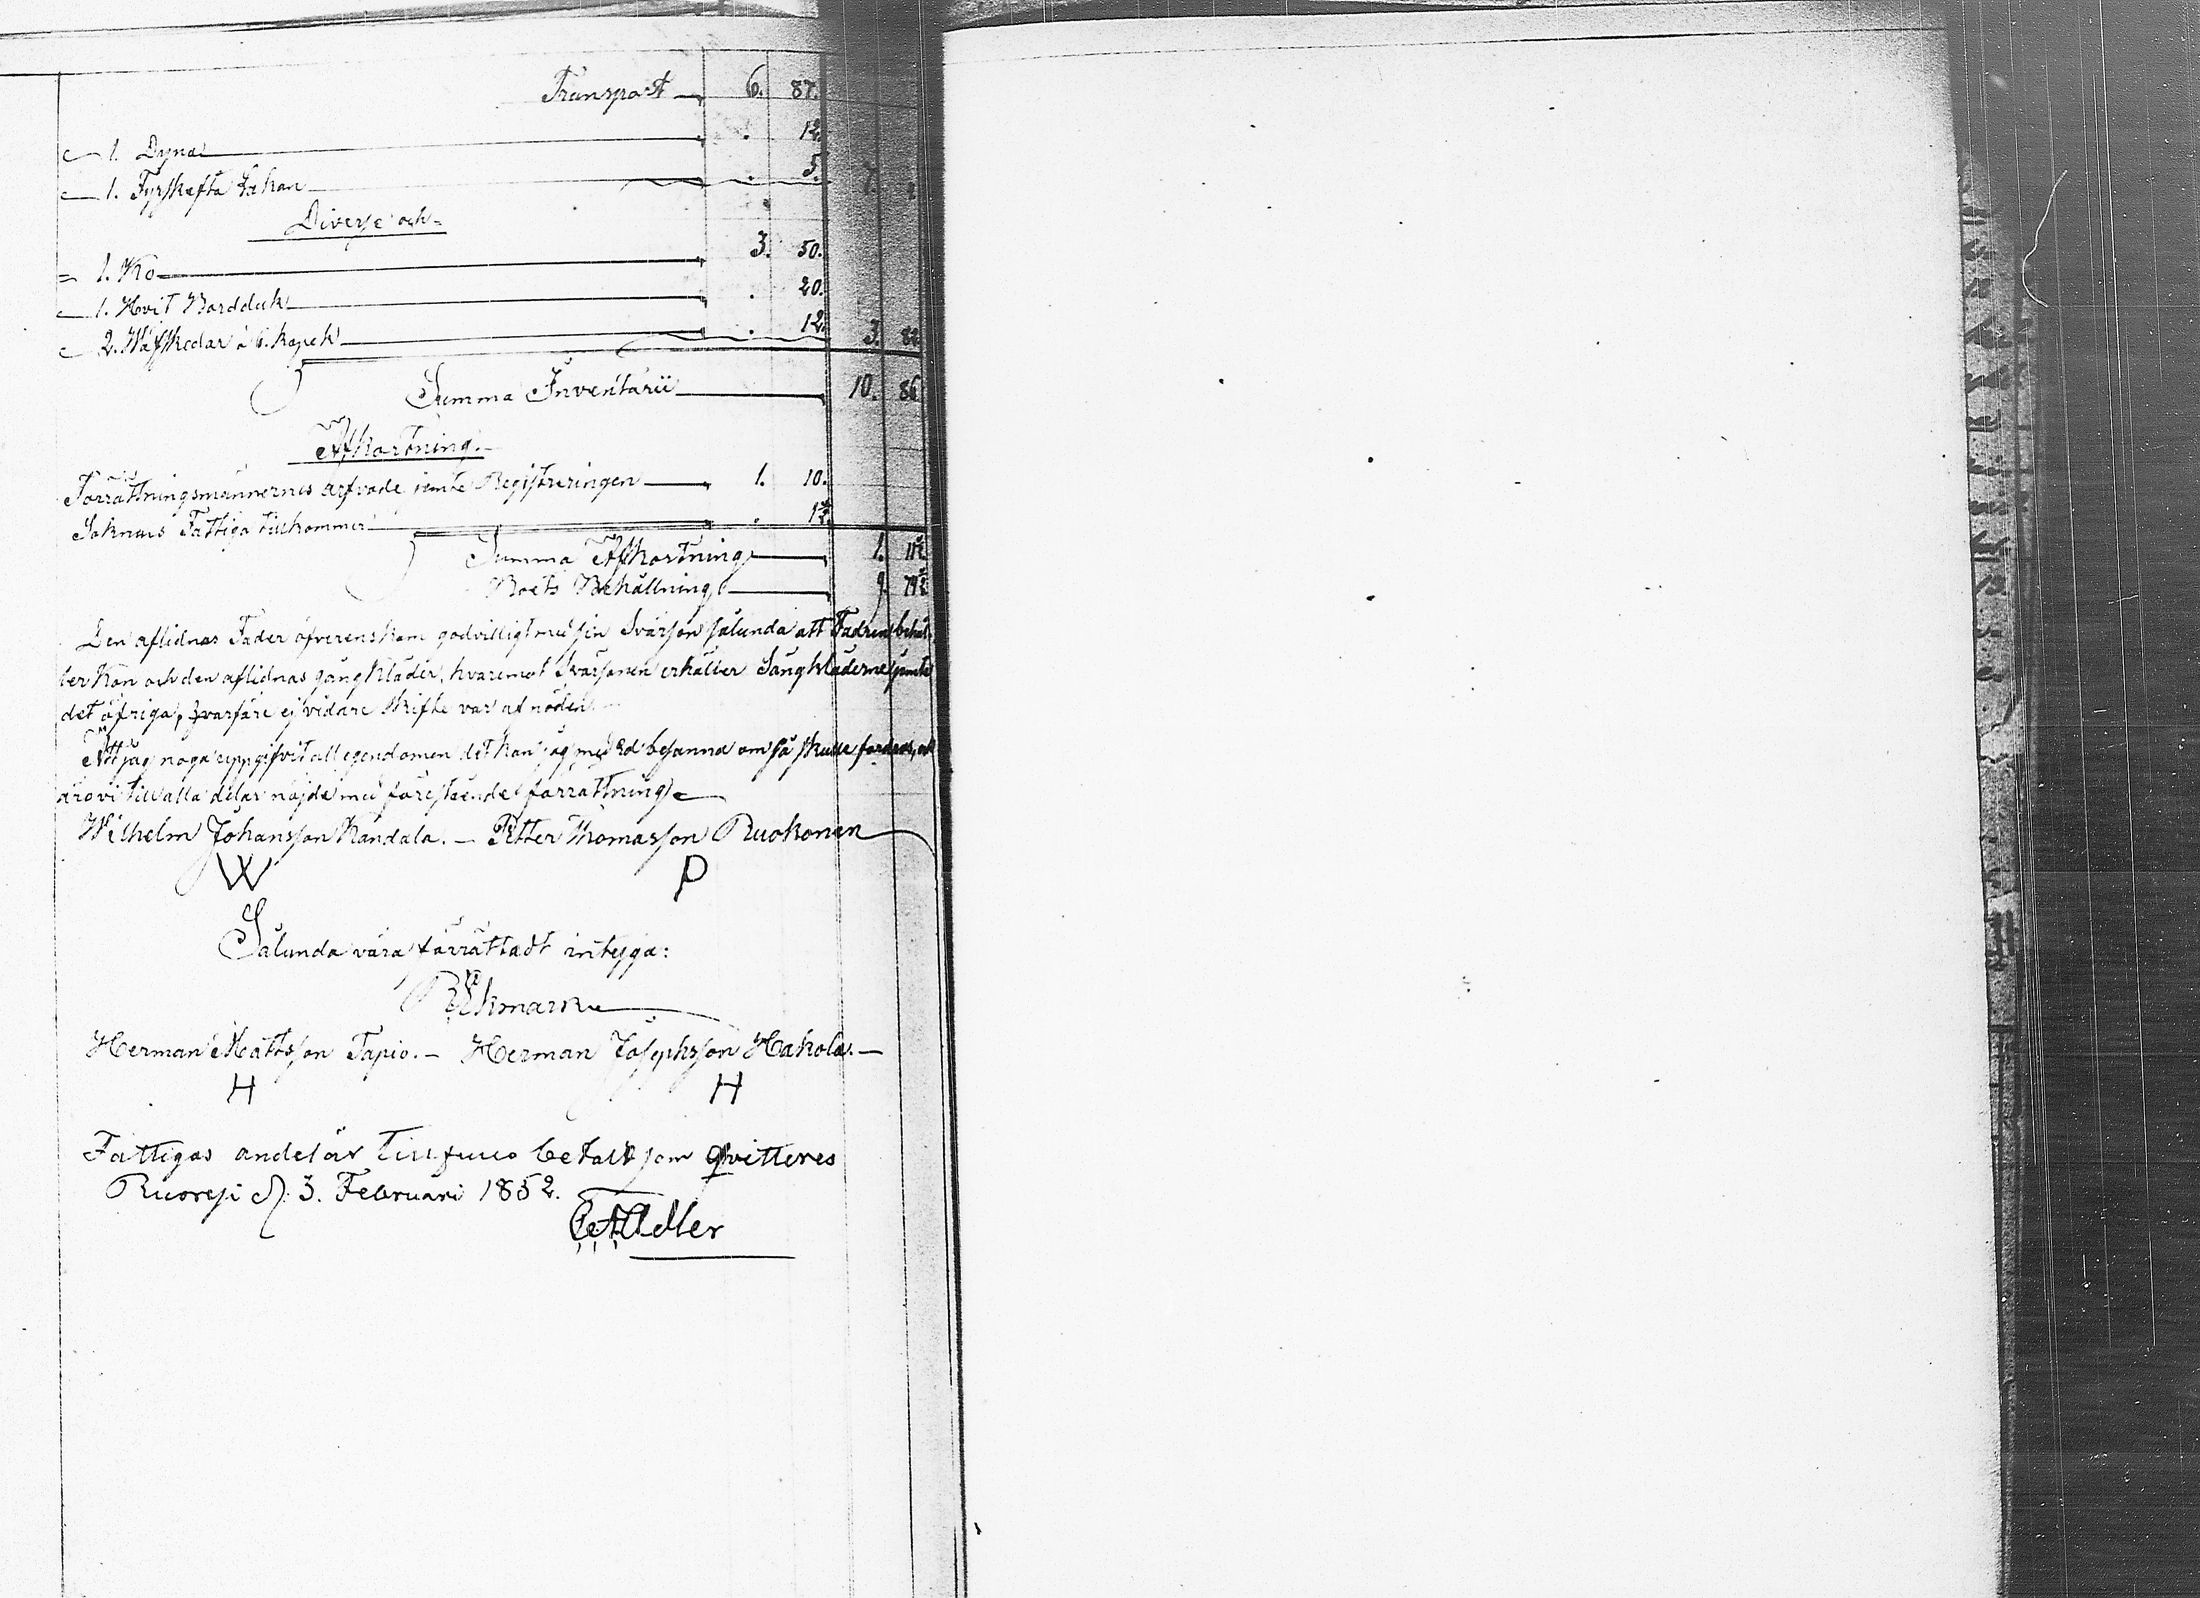 Transport 6. 87.
1. Dyna . 12.
1. Fyrskefta Lakan . 5. 7. 4.
Diverse och
1. Ko 3. 50.
1. Hvit Bordduk . 20.
2. Wäfskedar á 6. kopek . 12. 3. 82.
Summa Inventarii 10. 86
Afkortning.
Förrättningsmännernes arfvode jemte Registreringen 1. 10.
Soknens Fattiga tillkommer . 1½
Summa Afkortning 1. 11½
Boets Behållning 9. 74½
Den aflidnas Fader öfverenskom godvilligt med sin Svärson sålunda att Fadren behål-
ler Kon och den aflidnas gångkläder, hvaremot Svärsonen erhåller Sängkläderne jemte
det öfriga, hvarföre ej vidare skifte var af nöden.
Att jag noga uppgifvit all egendomen det kan jag med Ed besanna om så skulle fordras, och
äro vi till alla delar nöjde med förestående förrättning
Wilhelm Johansson Kandala. — Petter Thomasson Ruokonen
W P
Sålunda vara förrättadt intyga:
Herman Mattsson Tapio. — Herman Josephsson Hakola. —
H H
Fattigas andel är till fullo betalt som qvitteres
Ruovesi d. 3. Februari 1852.
Adler